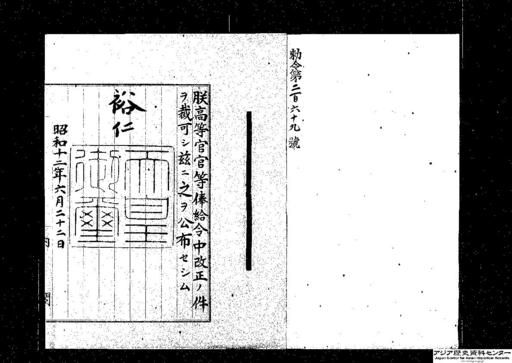 勅令第二百六十九號
朕高等官官等俸給令中改正ノ件
ヲ裁可シ茲ニ之ヲ公布セシム
裕仁
天皇御璽
昭和十二年六月二十二日
内
閣
アジア歴史資料センター
Japan Center for Asian Historical Records